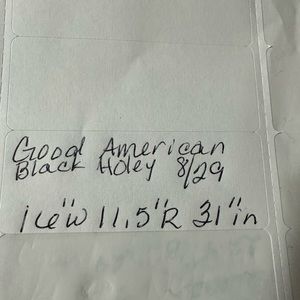 Good American
Black Holey 8/29
16"W 11.5"R 31"in